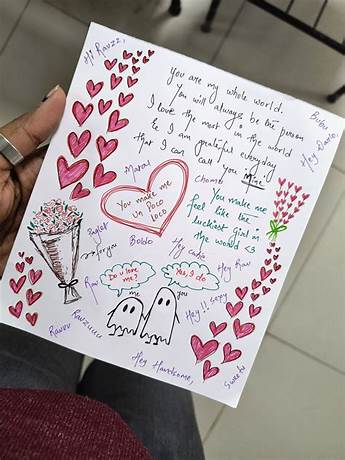 Hi Ravzz,
You are my whole world.
You will always be the person
I love the most in the world
& I am grateful everyday
that I can call you Mine
Bubs
Hey Daulo
Maral
Chomu
You make me
un Poco
loco
You make me
feel like the
luckiest girl in
the world <3
Baylof
→ for you
Bobdo
Hey cutie
Hey Rav
Rav
Do u love
me?
Yes, I do
me
you
Hey!! Sexy
Ravzuuu
Ravuu
Hey Handsome,
Sweetu